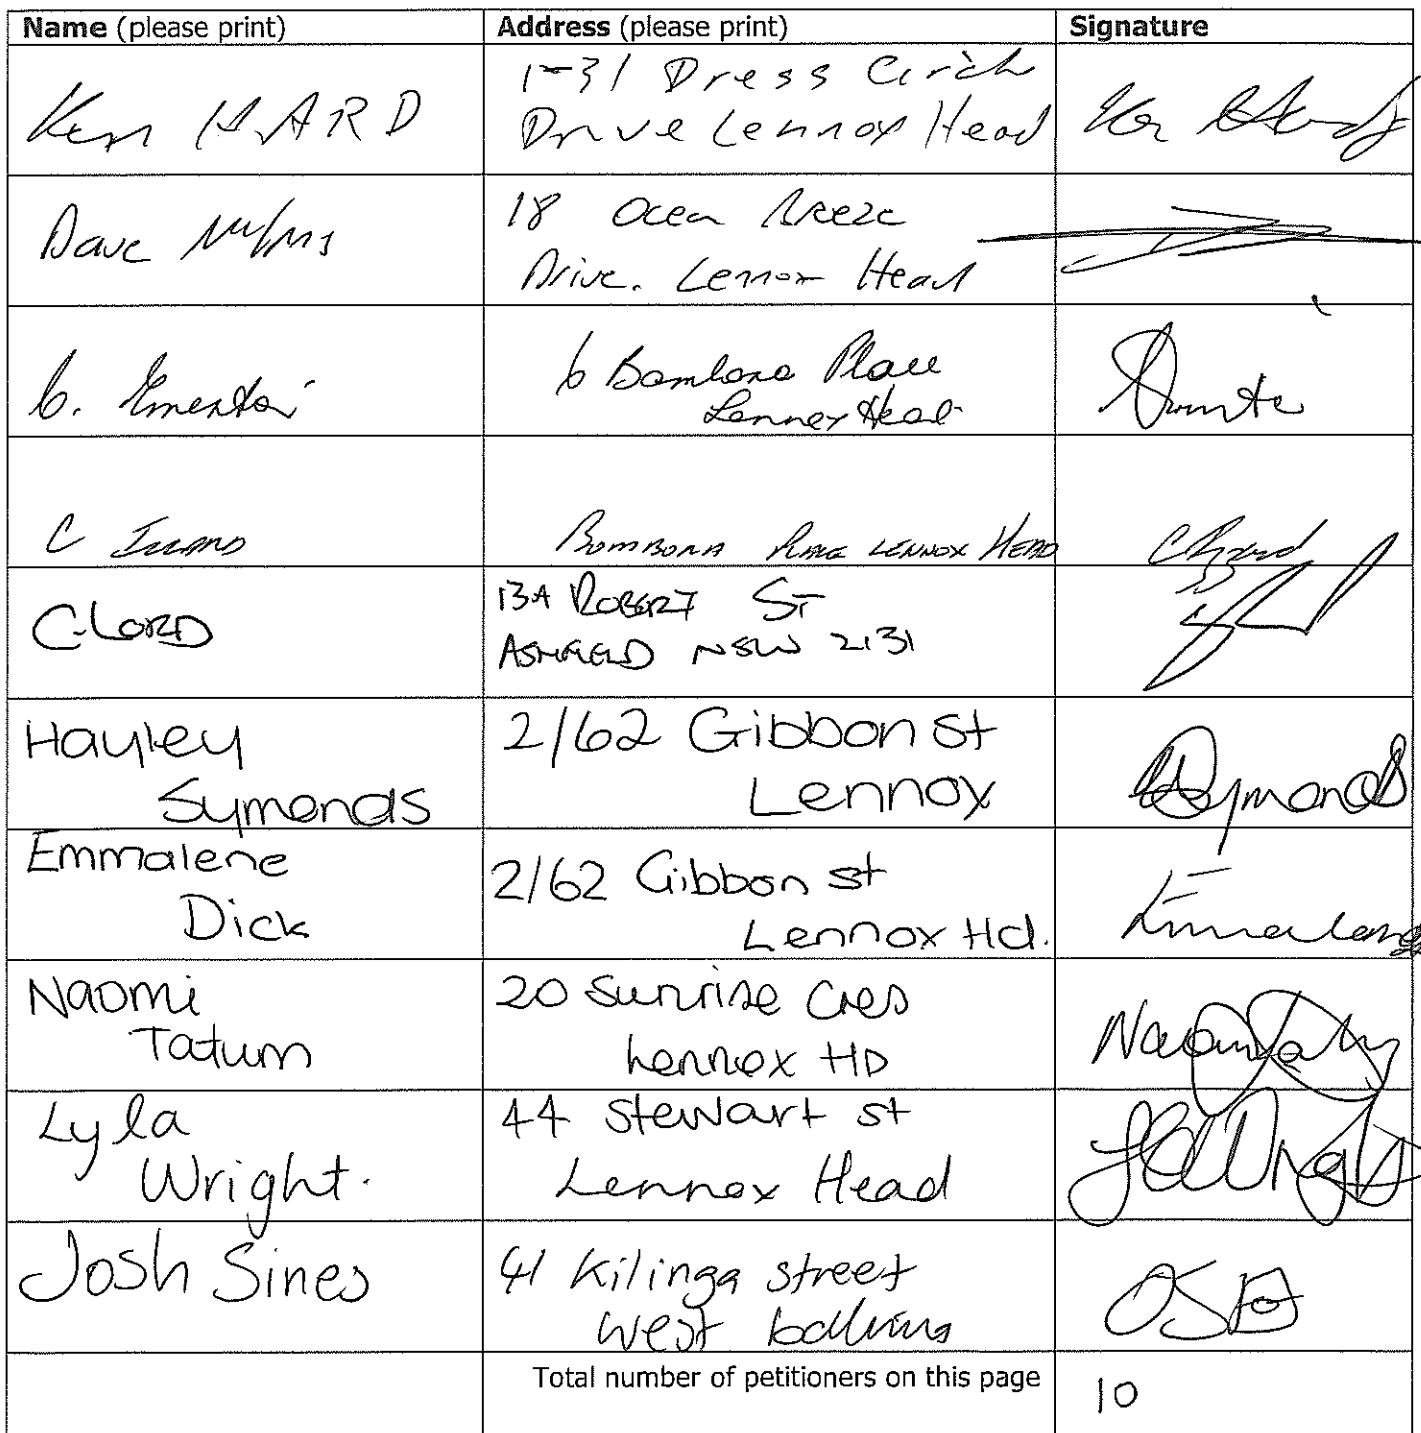 Name (please print) Address (please print) Signature
Ken HARD
1-31 Dress Circle
Drive Lennox Head
Dave
18 Ocean Breeze
Drive. Lennox Head
6 Bombora Place
Lennox Head
C
BOMBORA PLACE LENNOX HEAD
C. LORD
13A ROBERT ST
ASHFIELD NSW 2131
Hayley
Symonds
2/62 Gibbon st
Lennox
Symonds
Emmalene
Dick
2/62 Gibbon st
Lennox Hd.
Naomi
Tatum
20 Sunrise Cres
Lennox HD
Naomi
Lyla
Wright.
44 Stewart st
Lennox Head
Wright
Josh Sines
41 Kilinga street
West
Total number of petitioners on this page 10